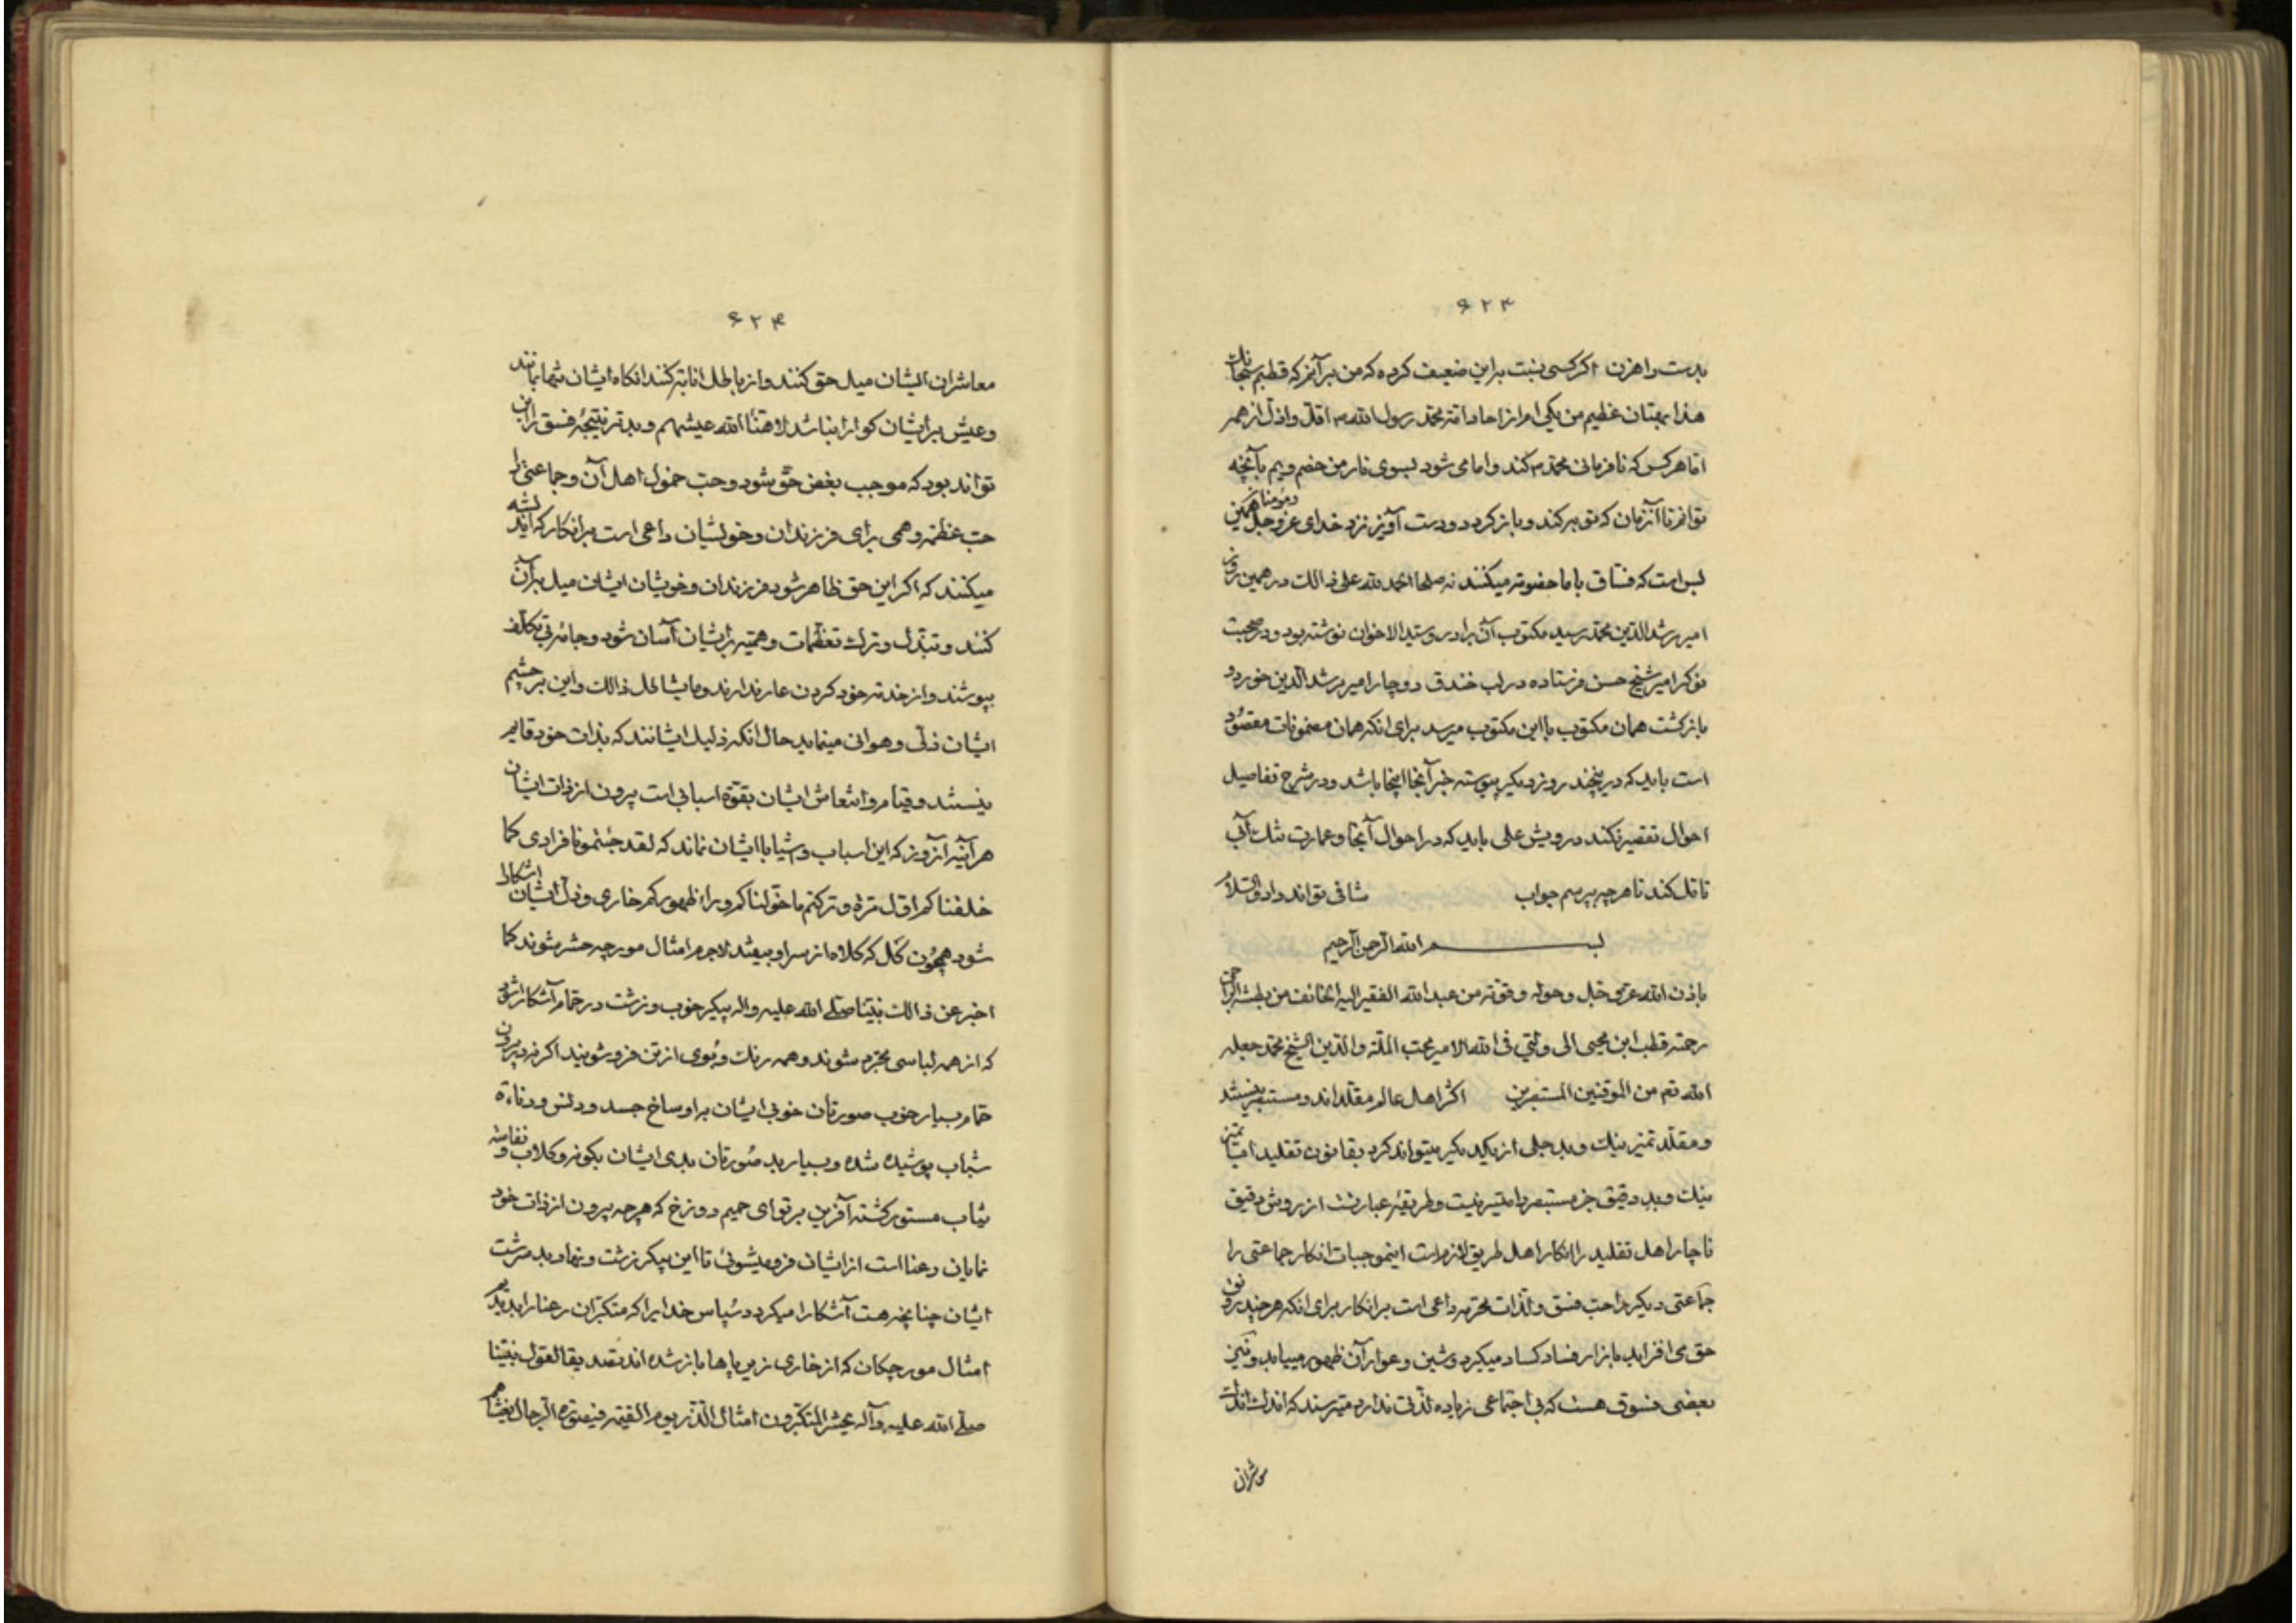 ۶۲۳
بدست راهزن اگر کسی نسبت براین ضعیف کرده که من بر آنم که قطبم سبحانک
هذا بهتان عظیم من یکی‌ام از احاد امة محمد رسول الله م اقل و اذل از همه
اما هر کس که نافرمانی محمد م کند و امامی شود بسوی نار من خصم ویم بآنچه
توانم تا آنزمان که توبه کند و باز کردد و دست آویز نزد خدای عز و جل همین
و مؤمنان
بس است که فساق با ما خصومة میکنند نه صلحا الحمد لله علی ذالک در همین روز
امیر مرشد الدین محمد رسید مکتوب آن برادر و سید الاخوان نوشته بود و در صحبت
نوکر امیر شیخ حسن فرستاده در لب خندق دوچار امیر مرشد الدین خورد و
بازکشت همان مکتوب با این مکتوب میرسد برای انکه همان مضمونات مقصود
است باید که درینچند روز دیگر پیوسته خبر آنجا اینجا باشد و در شرح تفاصیل
احوال تقصیر نکند درویش علی باید که در احوال آنجا و عمارت تنک آبی
تامل کند تا هرچه بپرسم جواب شافی تواند داد والسلام
بسم الله الرحمن الرحیم
باذن الله عز و جل و حوله و قوته من عبد الله الفقیر الیه الخائف من بطشه الراجی
رحمته قطب ابن محیی الی ولیی فی الله الامیر محب الملة والدین الشیخ محمد جعله
الله تم من الموقنین المستبصرین اکثر اهل عالم مقلداند و مستبصر نیستند
و مقلد تمیز نیک و بد جلی از یکدیکر میتواند کرد بقانون تقلید اما تمیز
نیک و بد دقیق جز مستبصر را میسر نیست و طریقه عبارتست از روش دقیق
ناچار اهل تقلید را انکار اهل طریق لازم است اینموجبات انکار جماعتی را
جماعتی دیکر را حب فسق و لذات محرمه داعی است بر انکار برای انکه هر چند رونق
حق می افزاید بازار فساد کساد میکیرد و شین و عوار آن ظهور مییابد و نیز
بعضی فسوق هست که بی اجتماعی زیاده لذتی ندارد میترسند که اندک اندک
معاشران
۶۲۴
معاشران ایشان میل حق کنند و از باطل انابة کنند انکاه ایشان تنها بمانند
و عیش بر ایشان کوارا نباشد لا هنأ الله عیشهم و بدتر نتیجه فسق را این
تواند بود که موجب بغض حق شود و حب خمول اهل آن و جماعتی را
حب عظمة وهمی برای فرزندان و خویشان داعی است بر انکار که اندیشه
میکنند که اکر این حق ظاهر شود فرزندان و خویشان ایشان میل بر آن
کنند و تبذل و ترک تعظمات وهمیة بر ایشان آسان شود و جامه بی تکلف
بپوشند و از خدمة خود کردن عار ندارند و ما یشاکل ذالک و این بر چشم
ایشان ذلی و هوانی مینماید حال انکه ذلیل ایشانند که بذات خود قایم
نیستند و قیام و انتعاش ایشان بقوة اسبابی است بیرون از ذات ایشان
هر آینه آنروز که این اسباب و اشیا با ایشان نماند که لقد جئتمونا فرادی کما
خلقناکم اول مرة و ترکتم ما خولناکم وراء ظهورکم خاری و ذل ایشان اشکارا
شود همچون کل که کلاه از سر او بیفتد لاجرم امثال مورچه حشر شوند کما
اخبر عن ذالک نبینا صلی الله علیه واله پیکر خوب و زشت در حمام آشکارا شود
که از همه لباسی مجرد شوند و همه رنک و بوی از تن فرو شویند اکر نه بیرون
حمام بسیار خوب صورتان خوبی ایشان به اوساخ جسد و دنس و دناءة
ثیاب پوشیده شده و بسیار بد صورتان بدی ایشان بکونه و کلاب و نفاسة
ثیاب مستور کشته آفرین بر تو ای حمیم دوزخ که هرچه بیرون از ذات خود
نمایان رعنا است از ایشان فرو میشوئی تا این پیکر زشت و نهاد بد سرشت
ایشان چنانچه هست آشکارا میکردد سپاس خدایرا که متکبران رعنا را بدیدیم
امثال مورچکان که از خاری زیر پاها باز شده اند تصدیقا لقول نبینا
صلی الله علیه وآله یحشر المتکبرون امثال الذر یوم القیمة فی صورة الرجال یغشاهم